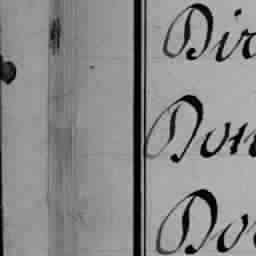 Dir
Don
Do